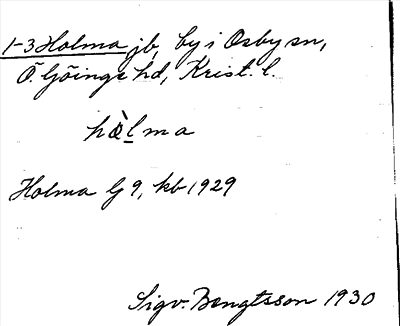 1-3 Holma jb, by i Osby sn,
Ö. Göinge hd, Krist. l.
hæ̀lma
Holma G 9, kb 1929
Sigv. Bengtsson 1930